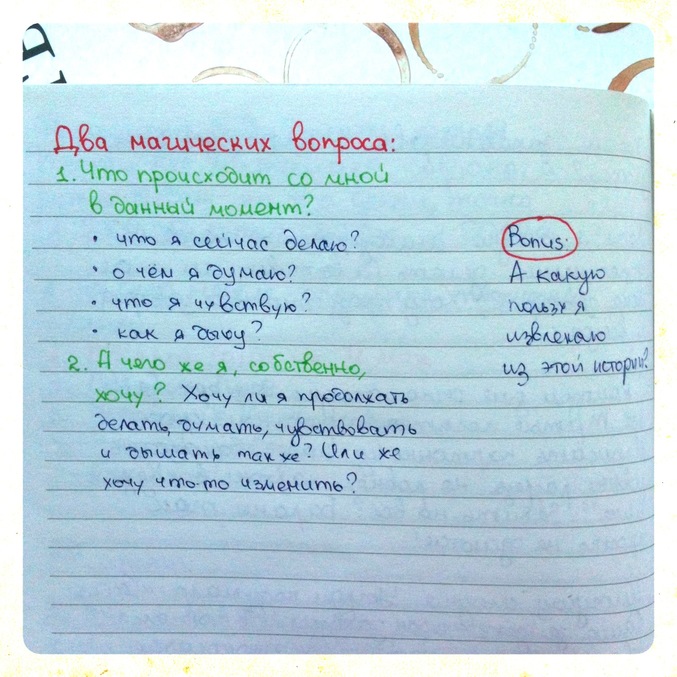 Два магических вопроса:
1. Что происходит со мной
в данный момент?
• что я сейчас делаю?
• о чём я думаю?
• что я чувствую?
• как я дышу?
2. А чего же я, собственно,
хочу? Хочу ли я продолжать
делать, думать, чувствовать
и дышать так же? Или же
хочу что-то изменить?
Bonus:
А какую
пользу я
извлекаю
из этой истории?